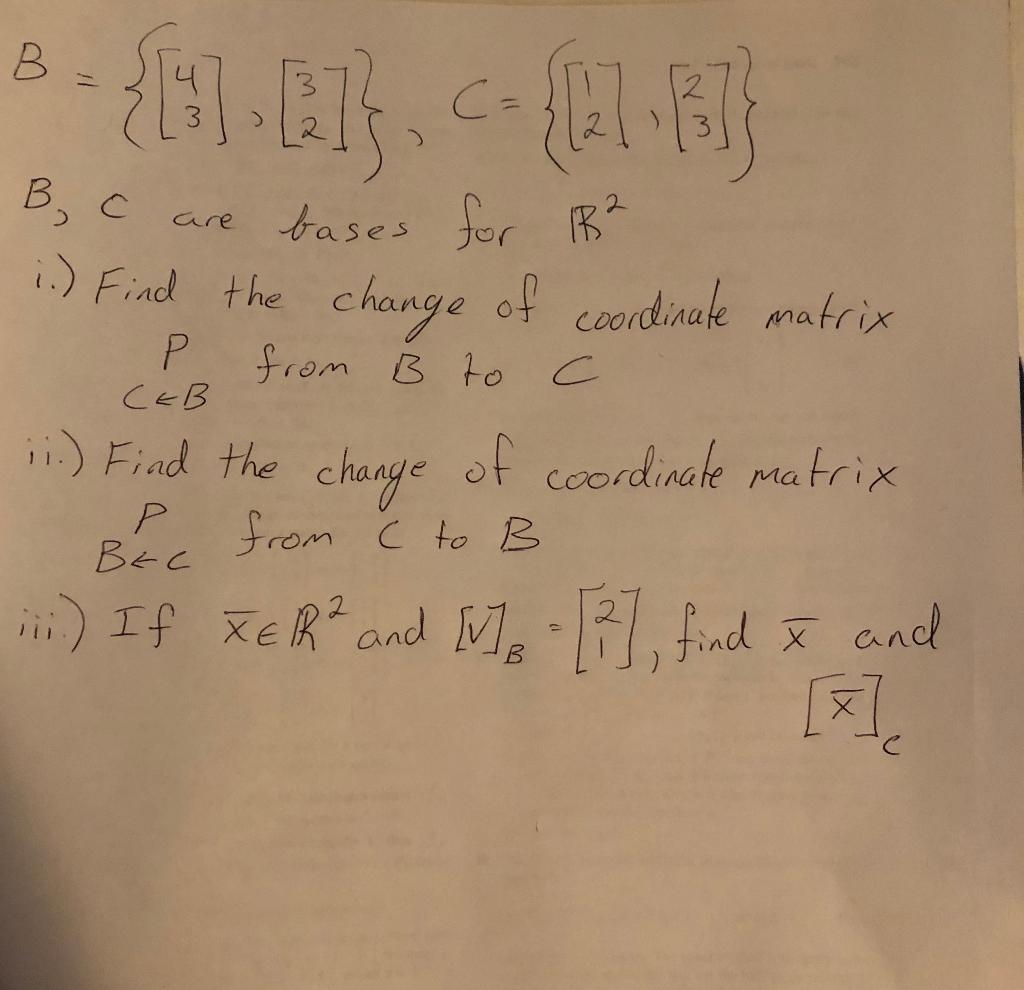 B = {[4 3], [3 2]}, C = {[1 2], [2 3]}
B, C are bases for ℝ²
i.) Find the change of coordinate matrix
P from B to C
C←B
ii.) Find the change of coordinate matrix
P from C to B
B←C
iii.) If x̄ ∈ ℝ² and [V]_B = [2 1], find x̄ and
[x̄]_C